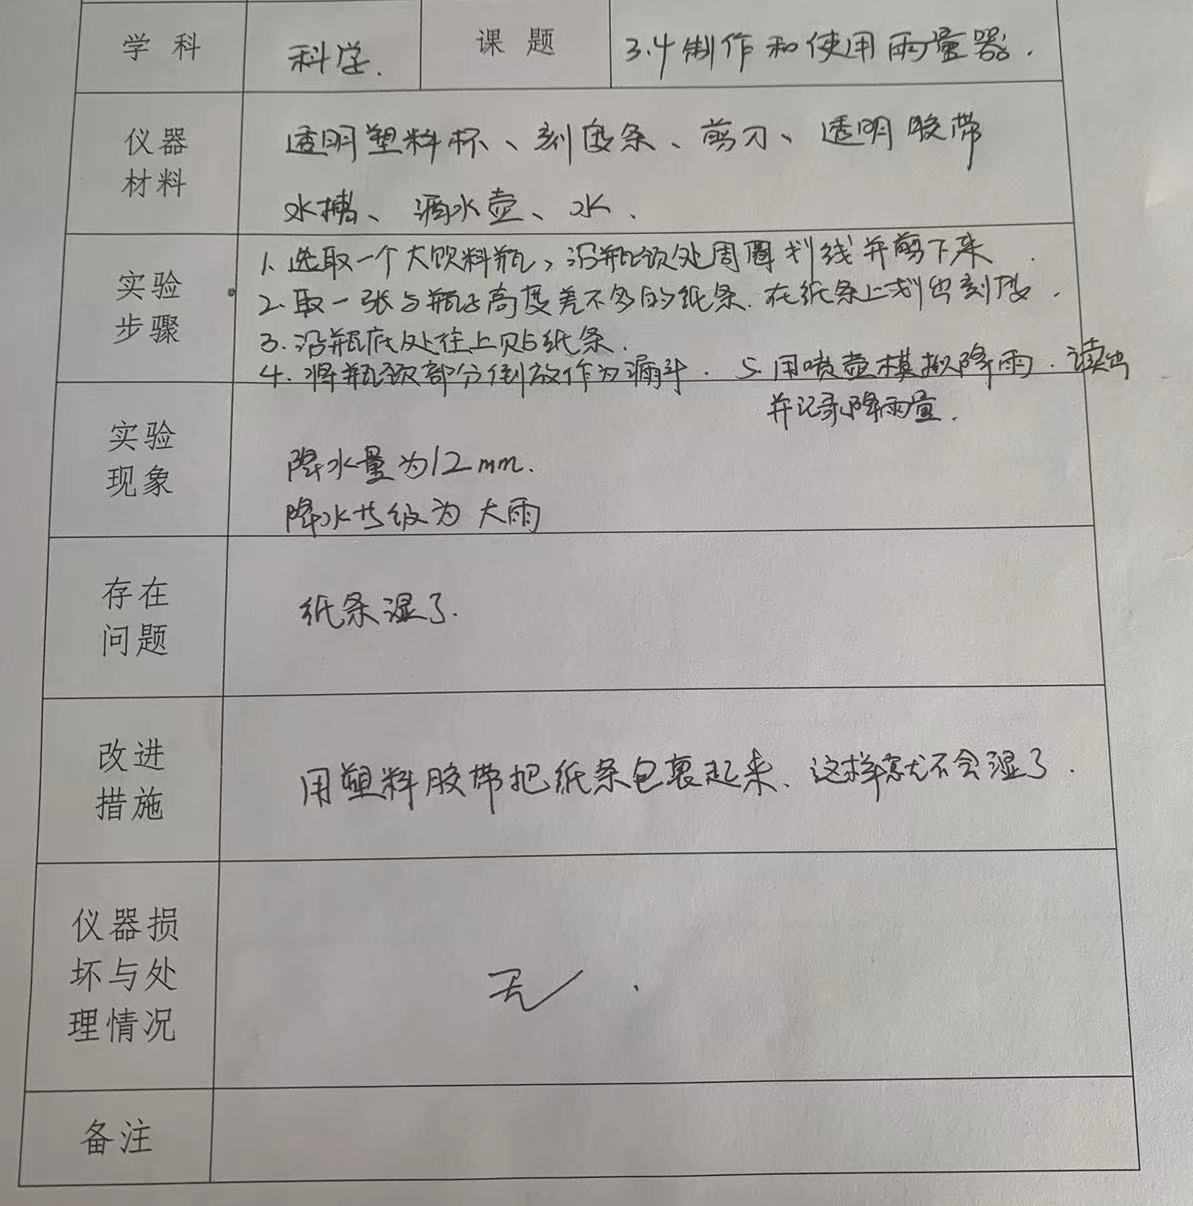 学科 科学. 课题 3.4制作和使用雨量器.
仪器
材料
透明塑料杯、刻度条、剪刀、透明胶带
水槽、洒水壶、水.
实验
步骤
1. 选取一个大饮料瓶,沿瓶颈处周圈划线并剪下来.
2. 取一张与瓶子高度差不多的纸条.在纸条上划出刻度.
3. 沿瓶底处往上贴纸条.
4. 将瓶颈部分倒放作为漏斗. 5. 用喷壶模拟降雨.读出
并记录降雨量.
实验
现象
降水量为12mm.
降水等级为大雨
存在
问题
纸条湿了.
改进
措施
用塑料胶带把纸条包裹起来、这样就不会湿了.
仪器损
坏与处
理情况
无.
备注